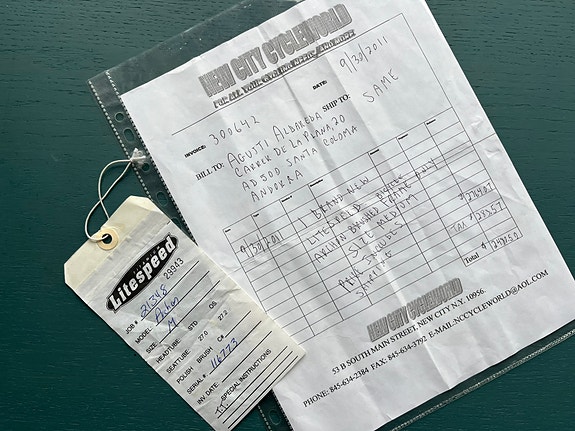 NEW CITY CYCLEWORLD
FOR ALL YOUR CYCLING NEEDS, AND MORE
DATE: 9/30/2011
INVOICE: 300642
BILL TO: AGUSTI ALBAREDA
CARRER DE LA PLANA, 20
AD500 SANTA COLOMA
ANDORRA
SHIP TO: SAME
9/30/2011
1 BRAND NEW
LITESPEED
BRUSHED FRAME ONLY
SIZE MEDIUM
PRICE INCLUDES
SHIPPING
Total
NEW CITY CYCLEWORLD
53 B SOUTH MAIN STREET, NEW CITY N.Y. 10956.
PHONE: 845-634-2384 FAX: 845-634-3792 E-MAIL:NCCYCLEWORLD@AOL.COM
Litespeed
JOB # 21348 29943
MODEL Archon
SIZE M
HEADTUBE STD OS
SEATTUBE 27.0 27.2
POLISH BRUSH C#
SERIAL# 116773
INV. DATE
SPECIAL INSTRUCTIONS